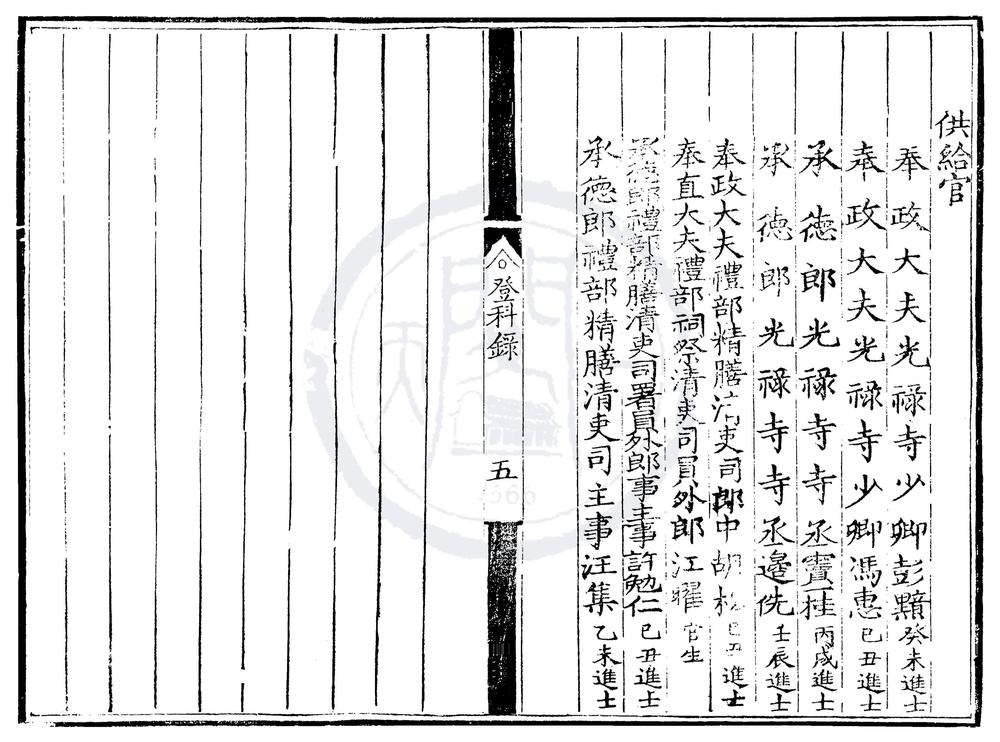 供給官
奉政大夫光祿寺少卿彭黯癸未進士
奉政大夫光祿寺少卿馮惠己丑進士
承德郎光祿寺寺丞竇一桂丙戌進士
承德郎光祿寺寺丞邊侁壬辰進士
奉政大夫禮部精膳清吏司郎中胡松己丑進士
奉直大夫禮部祠祭清吏司員外郎江曜官生
承德郎禮部精膳清吏司署員外郎事主事許勉仁己丑進士
承德郎禮部精膳清吏司主事汪集乙未進士
登科錄
五